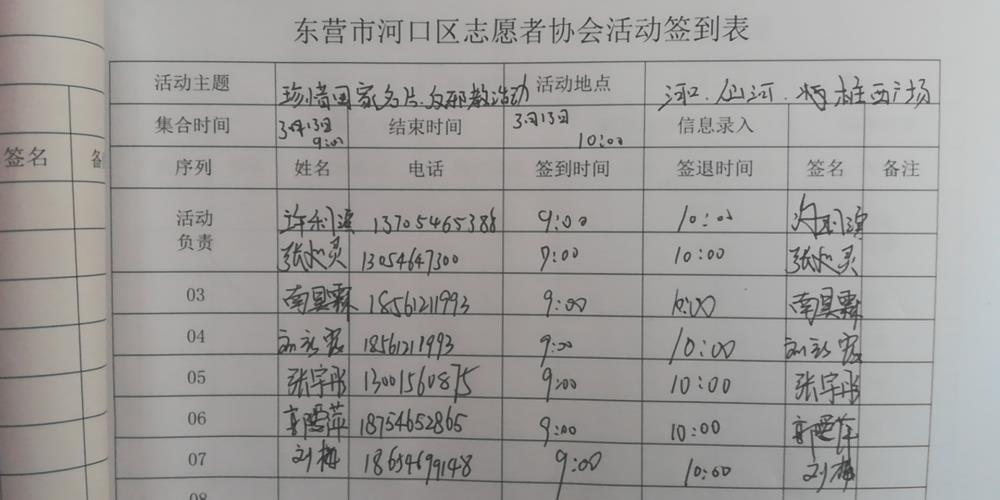 东营市河口区志愿者协会活动签到表
活动主题 珍惜国家名片.反邪教活动 活动地点 河口.仙河.将柱西广场
集合时间 3月13日 9:00 结束时间 3月13日 10:00 信息录入
签名 备
序列 姓名 电话 签到时间 签退时间 签名 备注
活动负责 许利滨 13705465388 9:00 10:00 许利滨
张如灵 13054647300 9:00 10:00 张如灵
03 南昊霖 18561211993 9:00 10:00 南昊霖
04 18561211993 9:00 10:00
05 张宇彤 13001560875 9:00 10:00 张宇彤
06 18754652865 9:00 10:00
07 刘梅 18654699148 9:00 10:00 刘梅
08